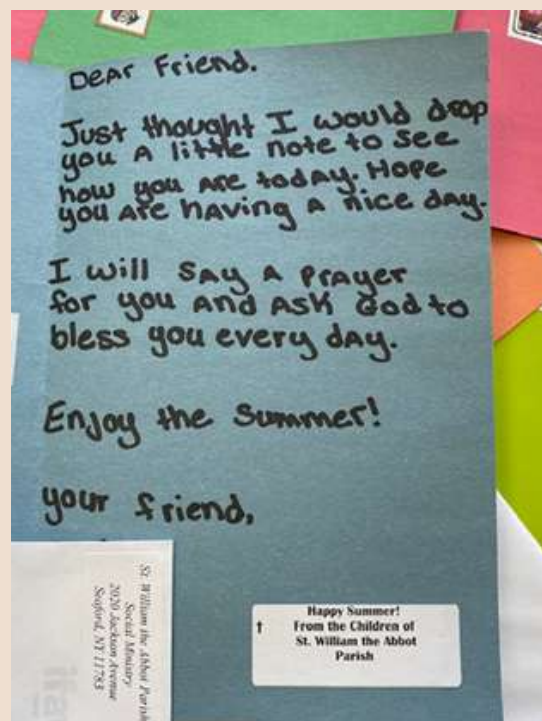 Dear Friend.
Just thought I would drop
you a little note to see
how you are today. Hope
you are having a nice day.
I will say a prayer
for you and ask God to
bless you every day.
Enjoy the Summer!
your friend,
St. William the Abbot Parish
Social Ministry
2020 Jackson Avenue
Seaford, NY 11783
Happy Summer!
From the Children of
St. William the Abbot
Parish